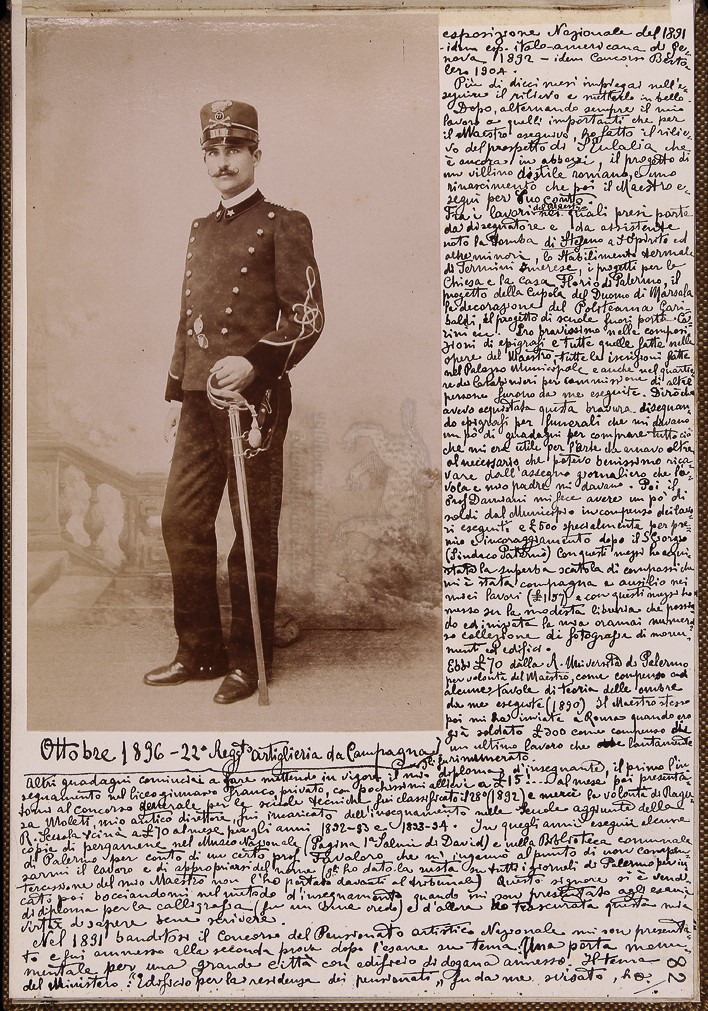 esposizione Nazionale del 1891
- idem esp. italo-americana di Ge-
nova 1892 - idem Concorso Berta
lero 1904.
Più di dieci mesi impiegai nell'e-
seguire il rilievo e metterlo in bello.
Dopo, alternando sempre il mio
lavoro a quelli importanti che per
il Maestro eseguivo, ho fatto il rilie-
vo del prospetto di S. Eulalia che
è ancora in abbozzi, il progetto di
un villino distile romano, e uno
rinascimento che poi il Maestro e-
seguì per suo conto.
Tra i lavori del Maestro nei quali presi parte
da disegnatore e da assistente
noto la Tomba di Stefano a S. Spirito ed
altre minori, lo Stabilimento termale
di Termini Imerese, i progetti per la
Chiesa e la casa Florio di Palermo, il
progetto della Cupola del Duomo di Marsala
la decorazione del Politeama Gari-
baldi, il progetto di scuole fuori porta
Ero bravissimo nelle composi-
zioni di epigrafi e tutte quelle fatte nelle
opere del Maestro, tutte le iscrizioni fatte
nel Palazzo Municipale e anche nel quartie-
re dei Carabinieri per commissione di altre
persone furono da me eseguite. Dirò che
avevo acquistata questa bravura, disegnan-
do epigrafi per funerali che mi davano
un pò di guadagni per comprare tutto ciò
che mi era utile per l'arte che amavo oltre
al necessario che potevo benissimo rica-
vare dall'assegno giornaliero che
e mio padre mi davano. Poi il
Prof. Damiani mi fece avere un po' di
soldi dal Municipio in compenso dei lavo-
ri eseguiti e £500 specialmente per pre-
mio e incoraggiamento dopo il S. Giorgio
(Sindaco Paternò) Con questi mezzi ho acqui-
stato la superba scattola di compassi che
mi è stata compagna e ausilio nei
miei lavori (£157) e con questi mezzi ho
messo su la modesta libreria che posse-
do ed iniziata la mia oramai numero-
sa collezione di fotografie di monu-
menti ed edifici.
Ebbi £70 dalla R. Università di Palermo
per volontà del Maestro, come compenso ad
alcune tavole di teoria delle ombre
da me eseguite (1890) Il Maestro stesso
poi mi ha inviate a Roma quando ero
già soldato £300 come compenso di
un ultimo lavoro che lautamente
Ottobre 1896 - 22° Regg.to Artiglieria da Campagna
Altri guadagni cominciai a fare mettendo in vigore il mio diploma d'insegnante, il primo l'in-
segnamento nel liceo ginnasio Franco, privato, con pochissimi allievi a £15 al mese, poi presenta-
tomi al concorso generale per le scuole tecniche, fui classificato 128° (1892) e mercè la volontà di Ragu-
sa Moleti, mio antico direttore, fui incaricato dell'insegnamento nelle scuole aggiunte della
R. Scuola Scinà a £70 al mese per gli anni 1892-93 e 1893-94. In quegli anni eseguii alcune
copie di pergamene nel Museo Nazionale (Pagina 1ª Salmi di David) e nella Biblioteca comunale
di Palermo per conto di un certo prof. Favaloro che m'ingannò al punto di non compen-
sarmi il lavoro e di appropriarsi del nome (gli ho dato la su tutti i giornali di Palermo per in-
tercessione del mio Maestro non l'ho portato davanti al tribunale) Questo signore si è vendi
cato poi bocciandomi sul metodo d'insegnamento quando mi son presentato agli esami
di diploma per la calligrafia (fu un bene credo) e d'allora ho trascurata questa mia
virtù di sapere bene scrivere.
Nel 1891 banditosi il Concorso del Pensionato artistico Nazionale mi son presenta-
to e fui ammesso alla seconda prova dopo l'esame su tema. Una porta monu-
mentale per una grande città con edificio di dogana annesso. Il tema
del Ministero: "Edificio per la residenza dei pensionati" fu da me svisato, ho
82